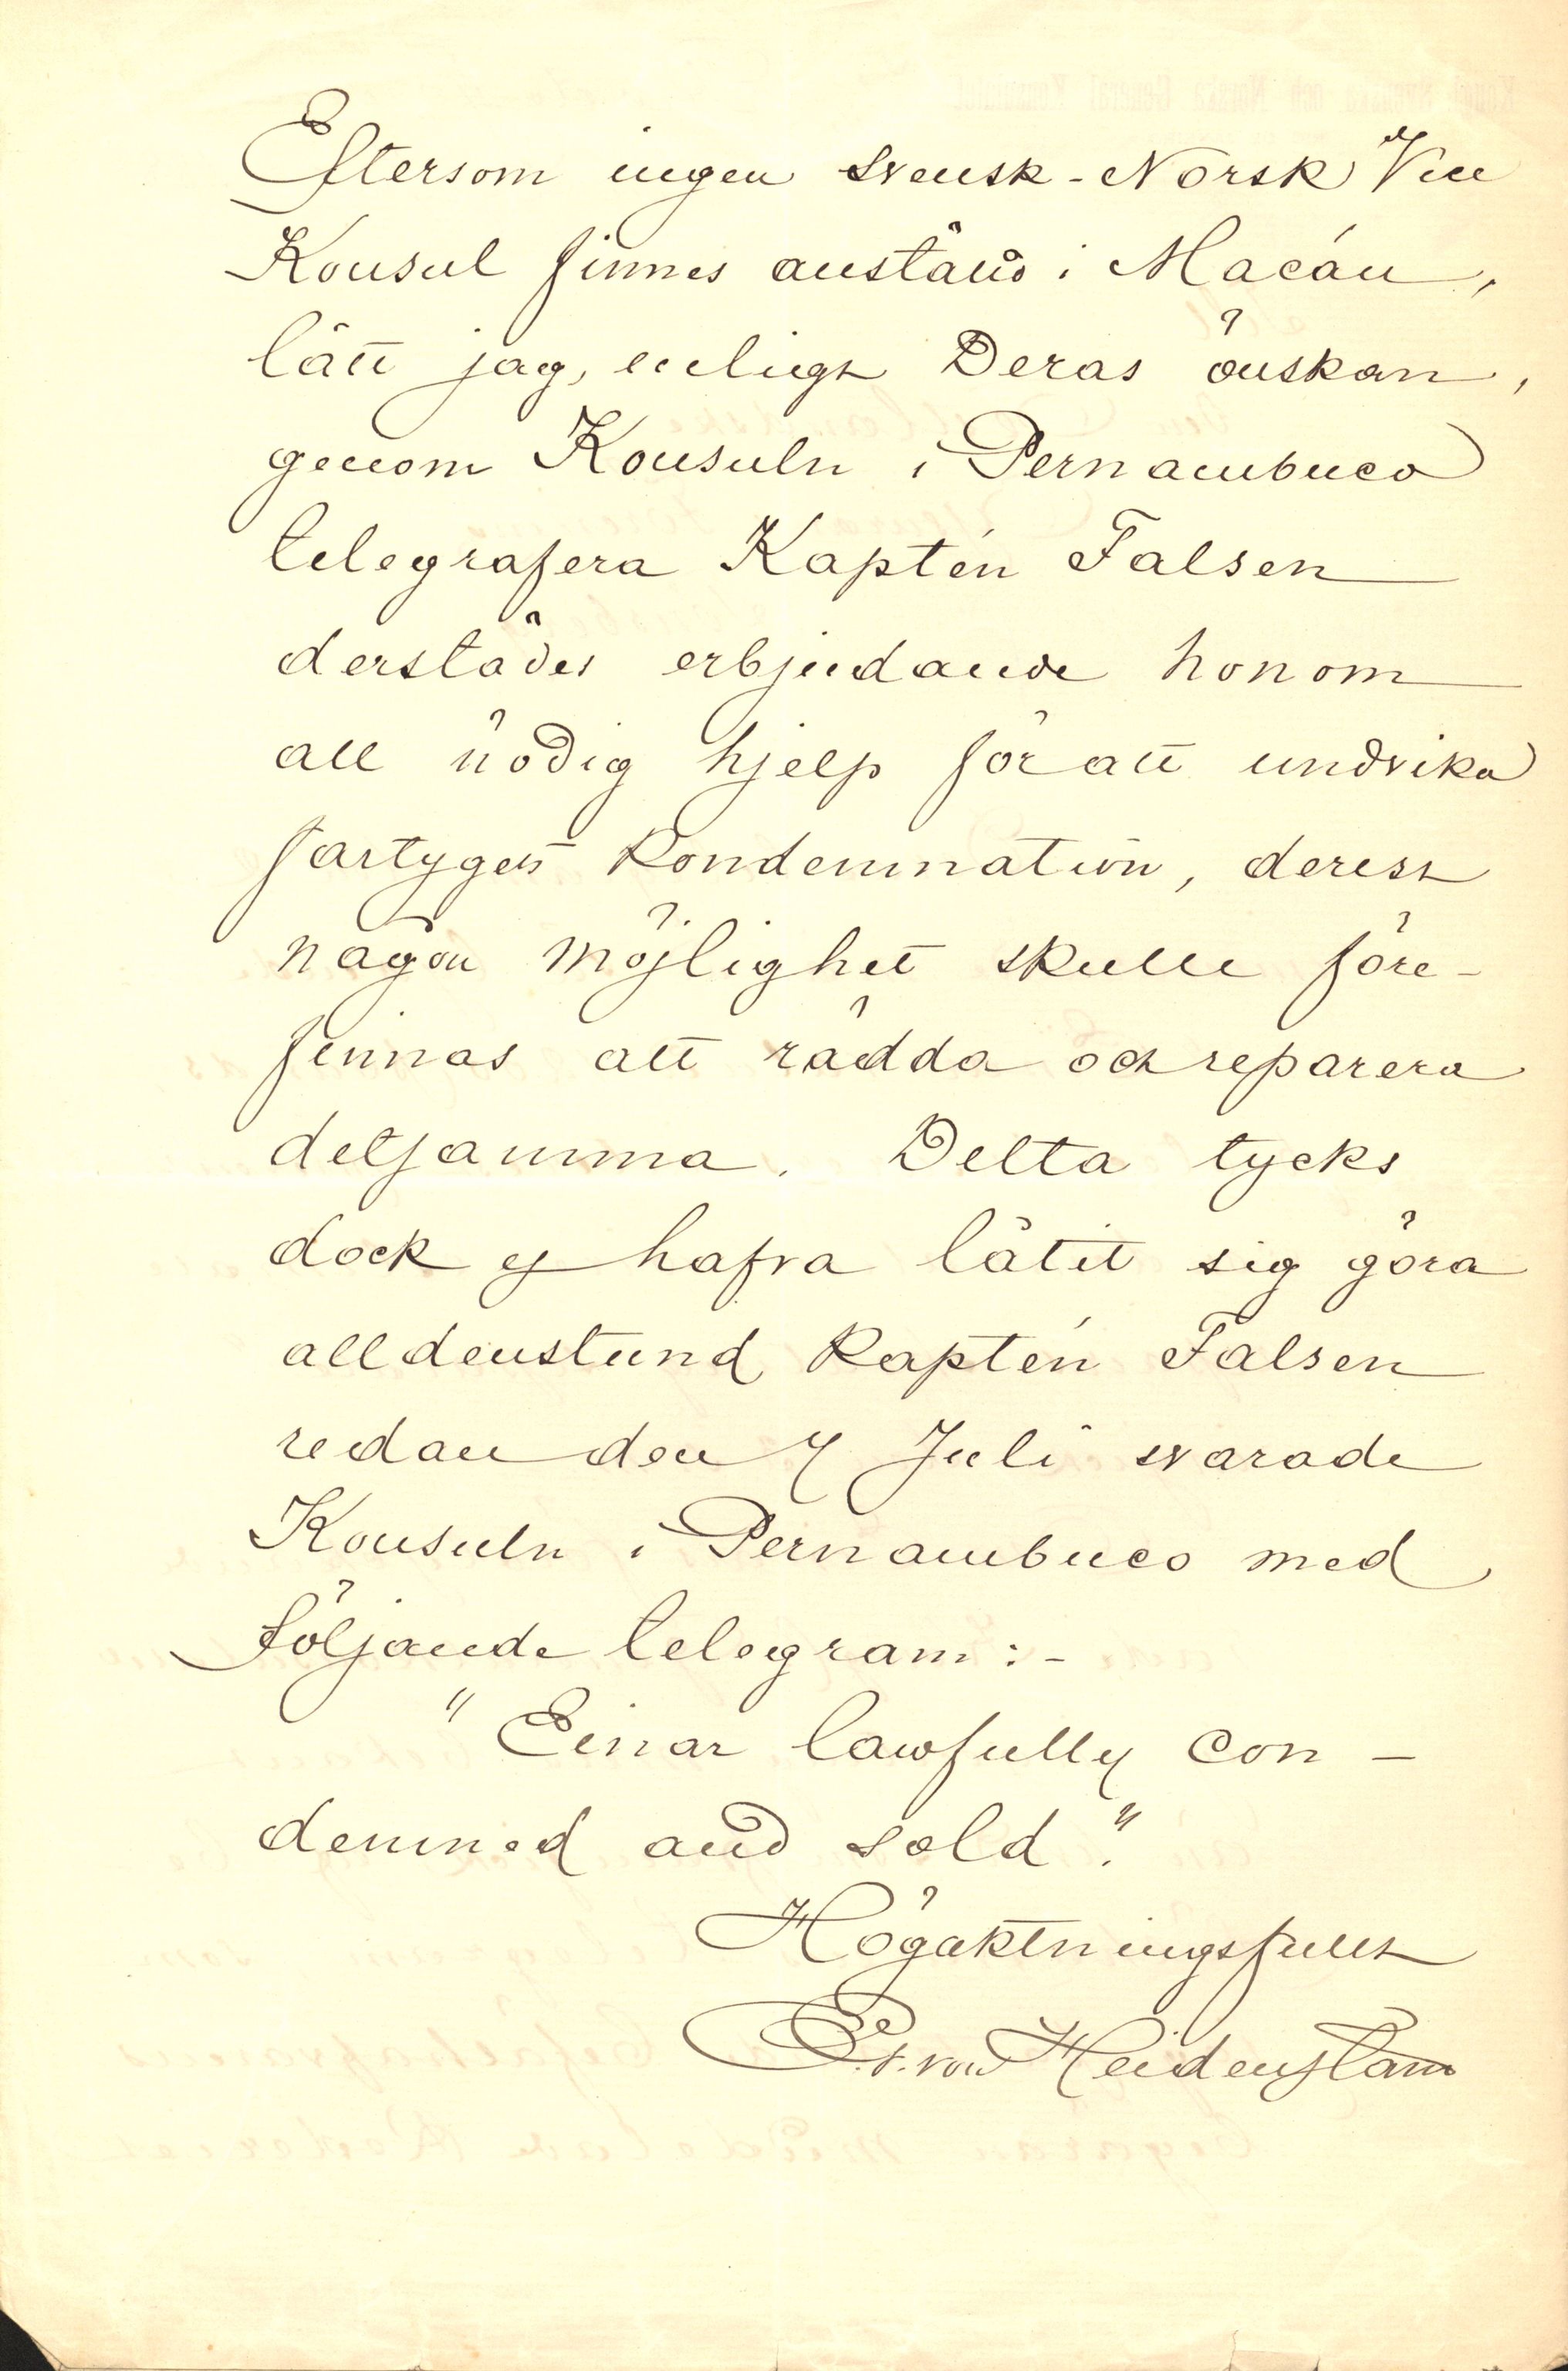 Eftersom ingen Svensk-Norsk Vice
Konsul finnes anstäld i Macáu,
lätt jag, enligt Deras önskan,
genom Konsuln i Pernambuco
telegrafera Kaptén Falsen
derstädes erbjudande honom
all nödig hjelp för att undvika
fartygets kondemnation, derest
någon möjlighet skulle före-
finnas att rädda och reparera
detsamma. Detta tycks
dock ej hafva låtit sig göra
alldenstund Kaptén Falsen
redan den 7 Juli svarade
Konsuln i Pernambuco med
följande telegram:-
"Einar lawfully con-
demned and sold."
Högaktningsfullt
von Heidenstam